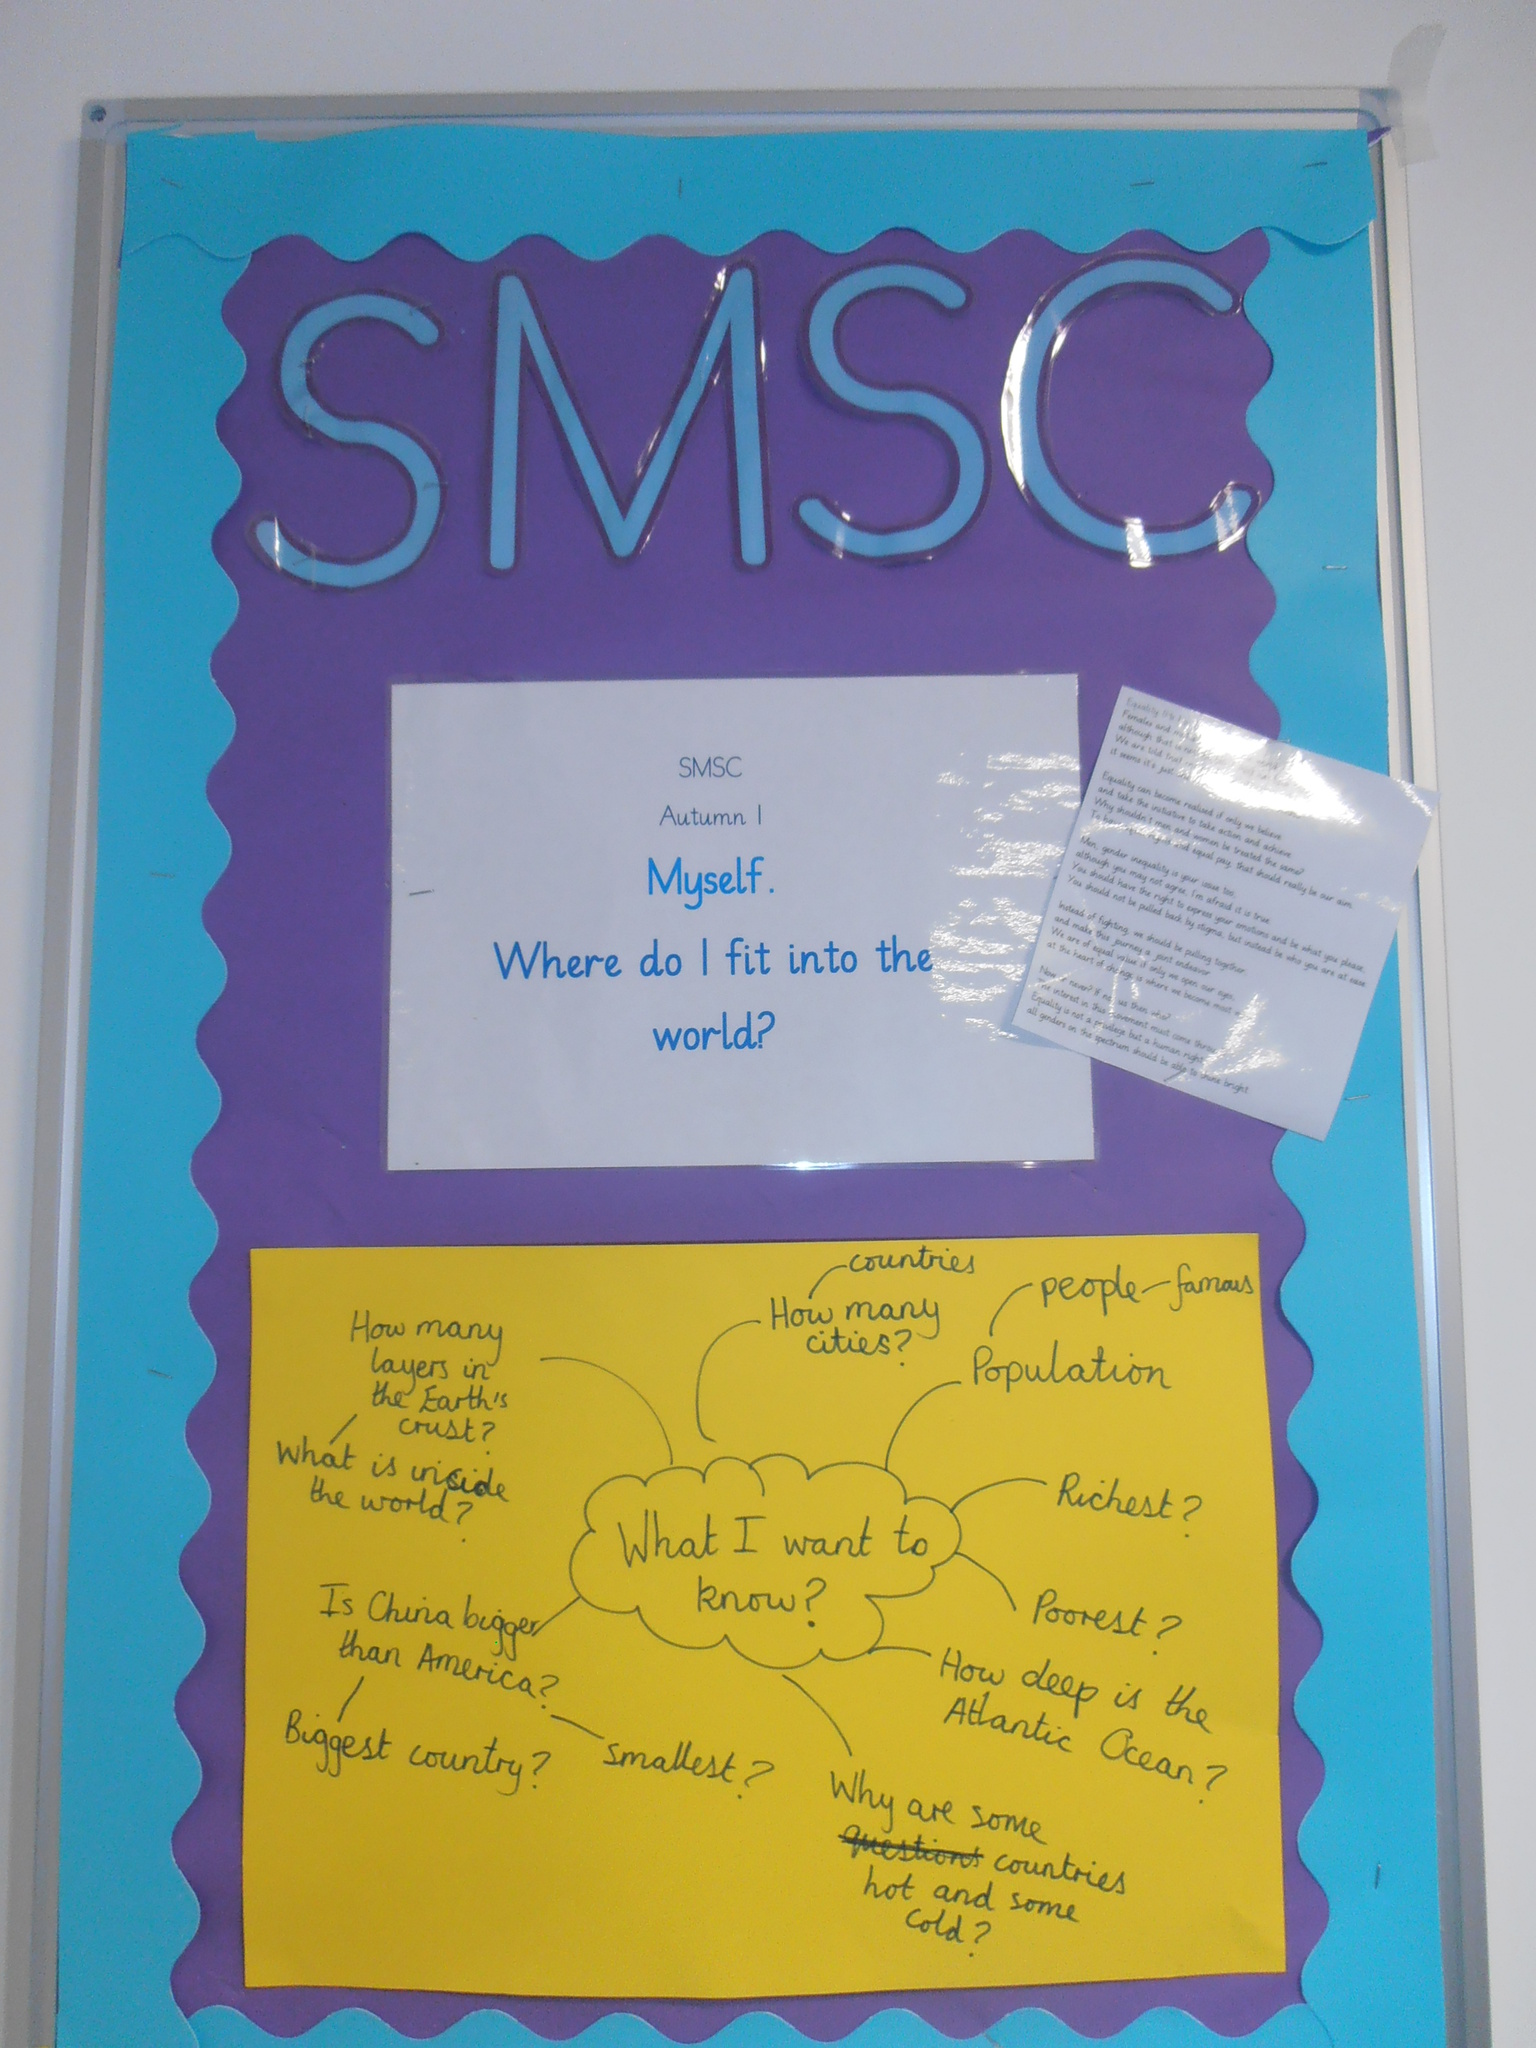 SMSC
SMSC
Autumn 1
Myself.
Where do I fit into the
world?
Equality
Females and
although that is
We are told that
it seems it's just
Equality can become realised if only we believe
and take the initiative to take action and achieve
Why shouldn't men and women be treated the same?
To have equal rights and equal pay, that should really be our aim.
Men, gender inequality is your issue too,
although you may not agree, I'm afraid it is true
You should have the right to express your emotions and be what you please
You should not be pulled back by stigma, but instead be who you are at ease
Instead of fighting, we should be pulling together
and make this journey a joint endeavor
We are of equal value if only we open our eyes,
at the heart of change is where we become most
Now or never? If not us then who?
The interest in this movement must come
Equality is not a privilege but a human right
all genders on the spectrum should be able to shine bright
countries
How many
cities?
people - famous
Population
How many
layers in
the Earth's
crust?
What is inside
the world?
Richest?
What I want to
know?
Poorest?
Is China bigger
than America?
How deep is the
Atlantic Ocean?
Biggest country?
smallest?
Why are some
questions countries
hot and some
cold?